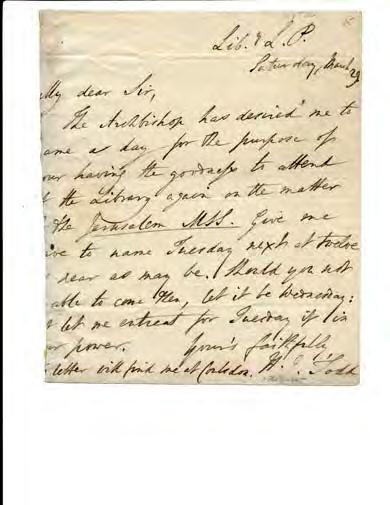 Lib. & L. P.
Saturday, March 29
My dear Sir,
The Archbishop has desired me to
ame a day for the purpose of
our having the goodness to attend
t the Library again on the matter
the Jerusalem MSS. Give me
ve to name Tuesday next at twelve
near as may be. Should you not
able to come then, let it be Wednesday:
t let me entreat for Tuesday if in
ur power. Your's faithfully
letter will find me at Coulsdon. H. J. Todd